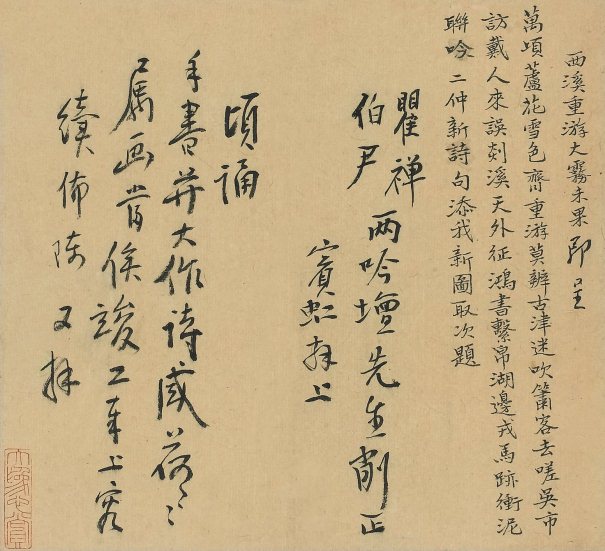 西溪重游大霧未果即呈
萬頃蘆花雪色齊重游莫辨古津迷吹簫客去嗟吳市
訪戴人來誤剡溪天外征鴻書繫帛湖邊戎馬跡衝泥
聯吟二仲新詩句添我新圖取次題
瞿禅
伯尹 两吟壇先生削正
賓虹拜上
頃誦
手書并大作詩感荷々
属画肯俟竣工奉上容
續佈陳 又拜